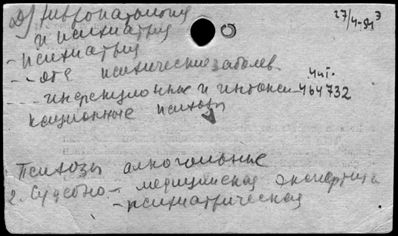 Д) Невропатология 27/4-81 г
и психиатрия
- психиатрия
- дет. психические заболев. чит.
- инфекционные и интокси- 464732
кационные психозы
Психозы алкогольные
2. Судебно - медицинская экспертиза
- психиатрическая